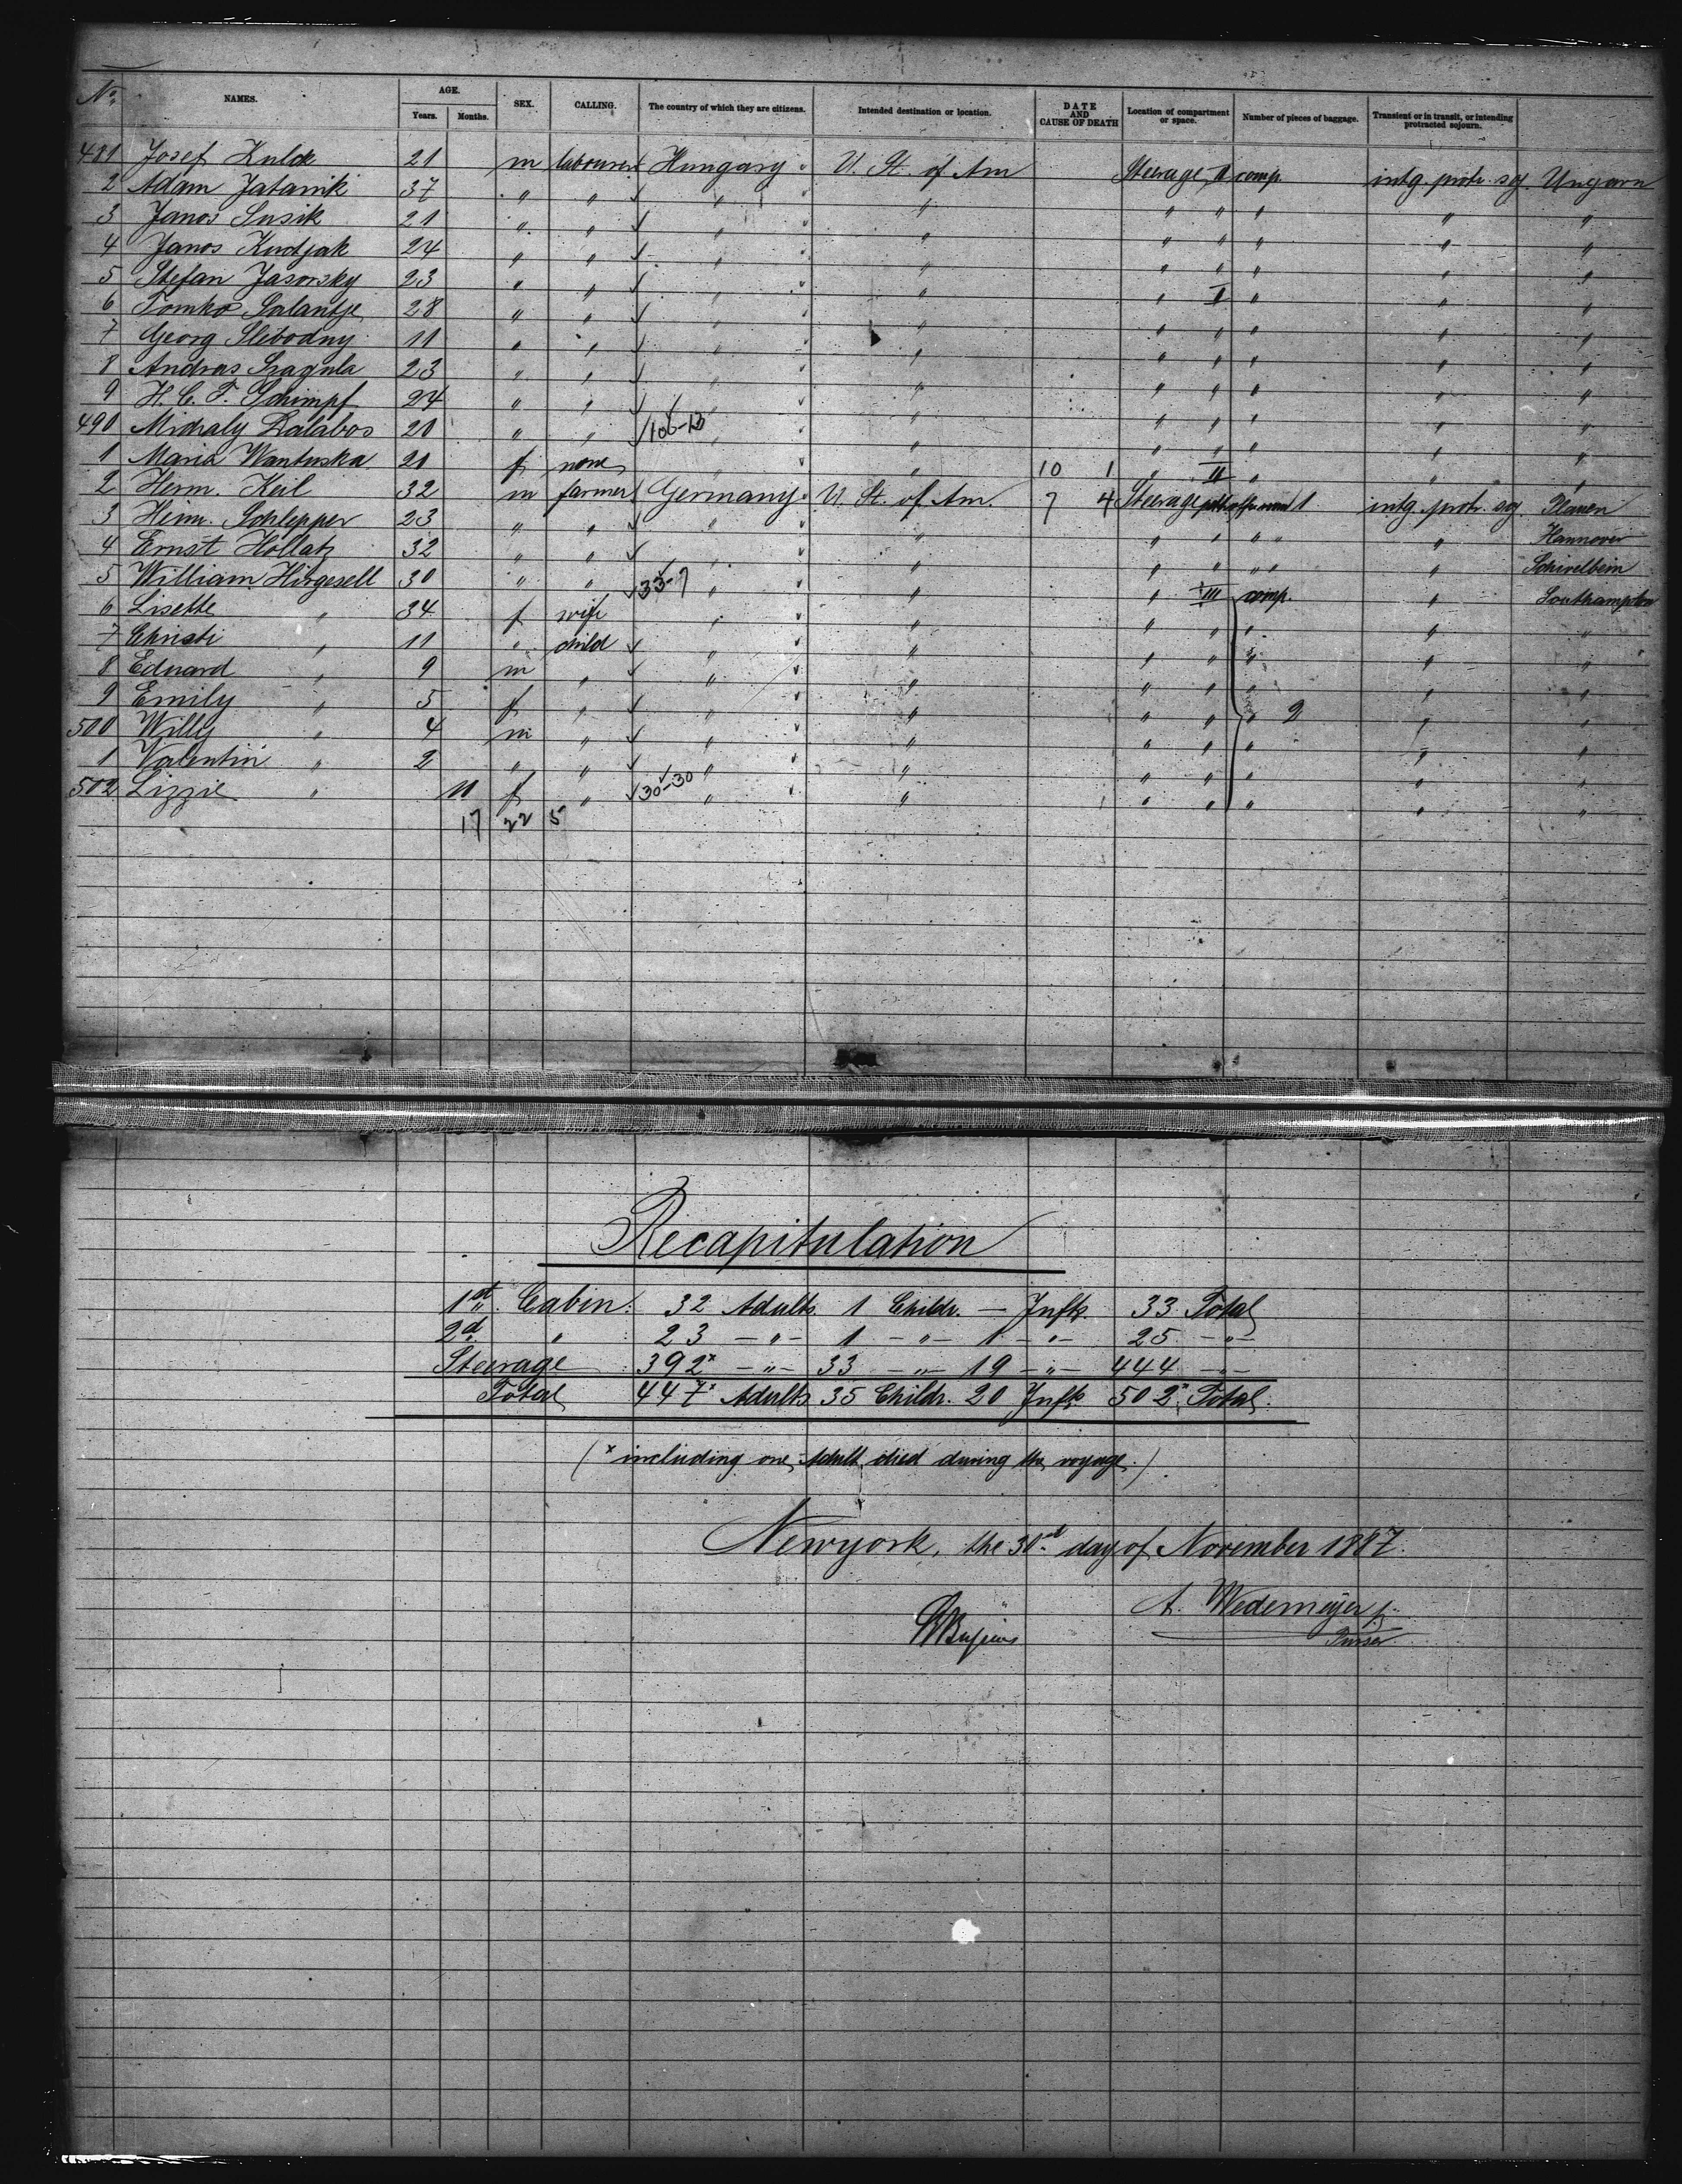 No. NAMES. AGE. Years. Months. SEX. CALLING. The country of which they are citizens. Intended destination or location. DATE AND CAUSE OF DEATH Location of compartment or space. Number of pieces of baggage. Transient or in transit, or intending protracted sojourn.
481 Josef Kulda 21 m labourer Hungary U. St. of Am Steerage II comp. intg. protr. soj. Ungarn
2 Adam Jatarnik 37 " " " " " " " " "
3 Janos Susik 21 " " " " " " " " "
4 Janos Kudjak 24 " " " " " " " " "
5 Stefan Jasovsky 23 " " " " " I " " "
6 Tomko Salantje 28 " " " " " " " " "
7 Georg Slebodny 11 " " " " " " " " "
8 Andras Szagula 23 " " " " " " " " "
9 H. C. F. Schimpf 24 " " " " " " " " "
490 Michaly Dalabos 20 " " 106-13 " " " " " " "
1 Maria Wantuska 21 f none " " 10 1 " II " " "
2 Herm. Keil 32 m farmer Germany U. St. of Am. 7 4 Steerage 1 intg. protr. soj. Plauen
3 Herm. Schlepper 23 " " " " " " " " " Hannover
4 Ernst Hollatz 32 " " " " " " " " " Schivelbein
5 William Hirgesell 30 " " 33-7 " " " III comp. " Southampton
6 Lisette " 34 f wife " " " " " " "
7 Christi " 11 " child " " " " " " "
8 Eduard " 9 m " " " " " " " "
9 Emily " 5 f " " " " " " 2 " "
500 Willy " 4 m " " " " " " " "
1 Valentin " 2 " " " " " " " " "
502 Lizzie " 11 f " 30-30 " " " " " " "
17 22 5
Recapitulation
1st. Cabin: 32 Adults 1 Childr. — Infts. 33 Total
2d. " : 23 —"— 1 —"— 1 —"— 25 —"—
Steerage : 392* —"— 33 —"— 19 —"— 444 —"—
Total 447* Adults 35 Childr. 20 Infts 502* Total.
(* including one Adult died during the voyage.)
Newyork, the 30st day of November 1887.
A. Wedemeyer jr.
Purser